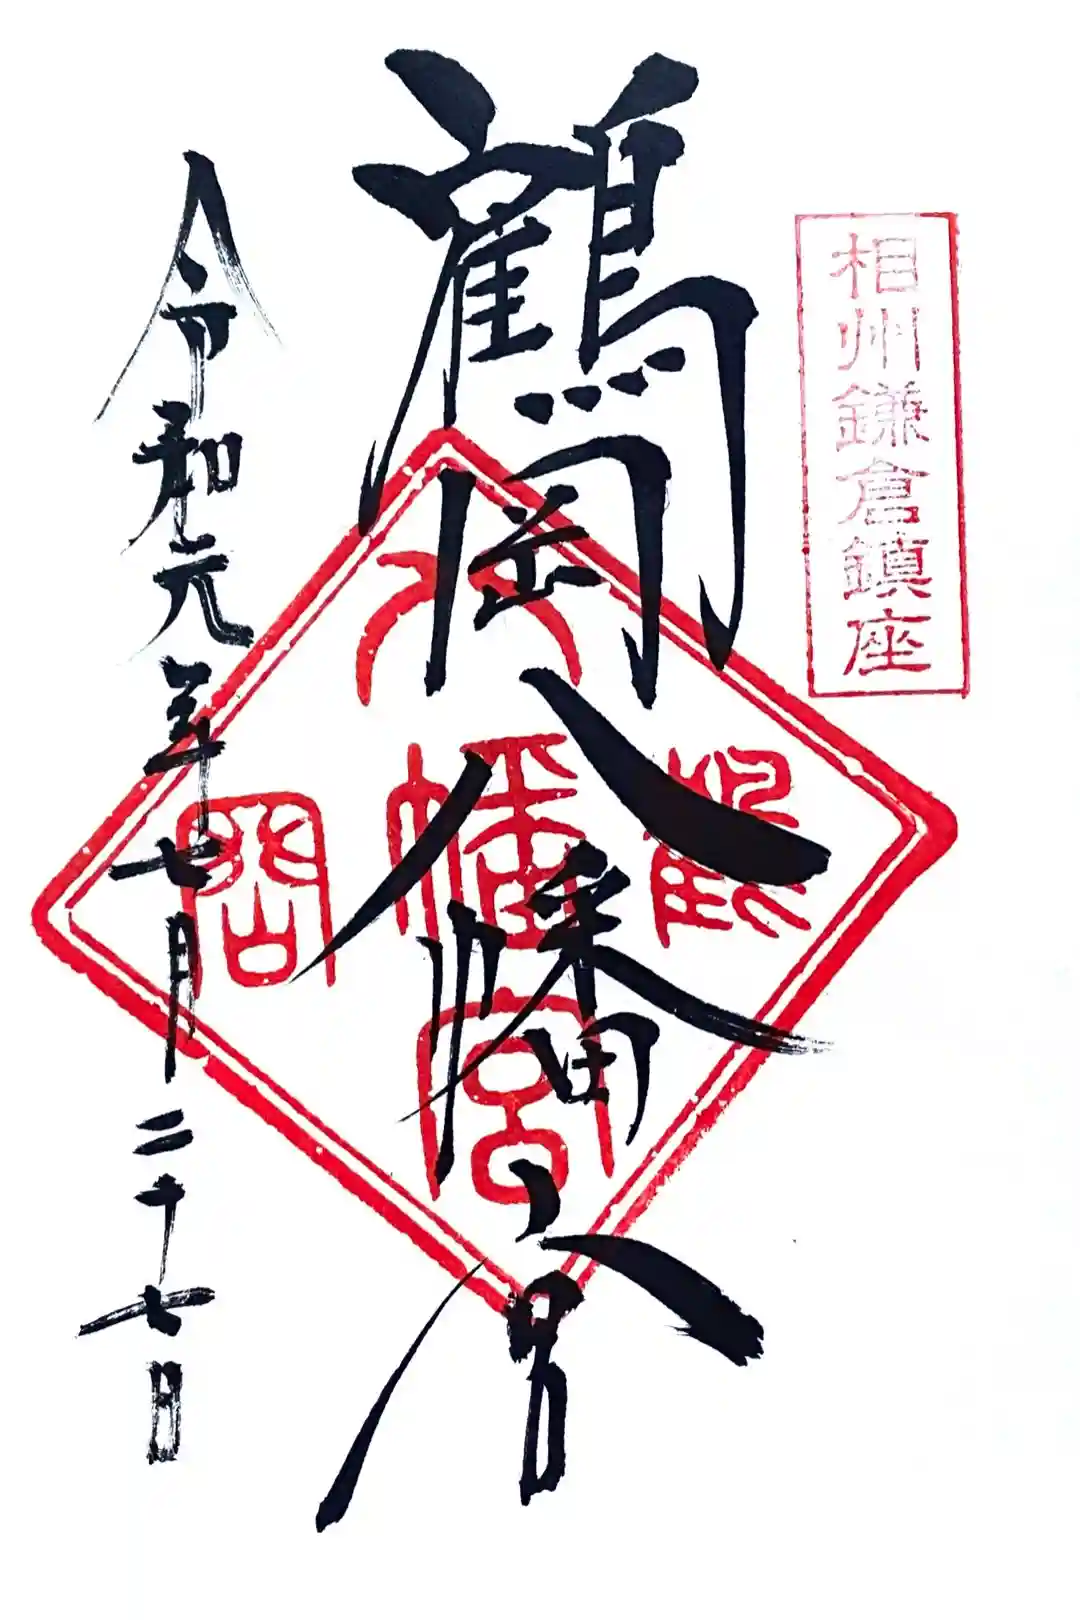 相州鎌倉鎮座
鶴岡八幡宮
令和元年七月二十七日
八
鶴 幡 岡
宮